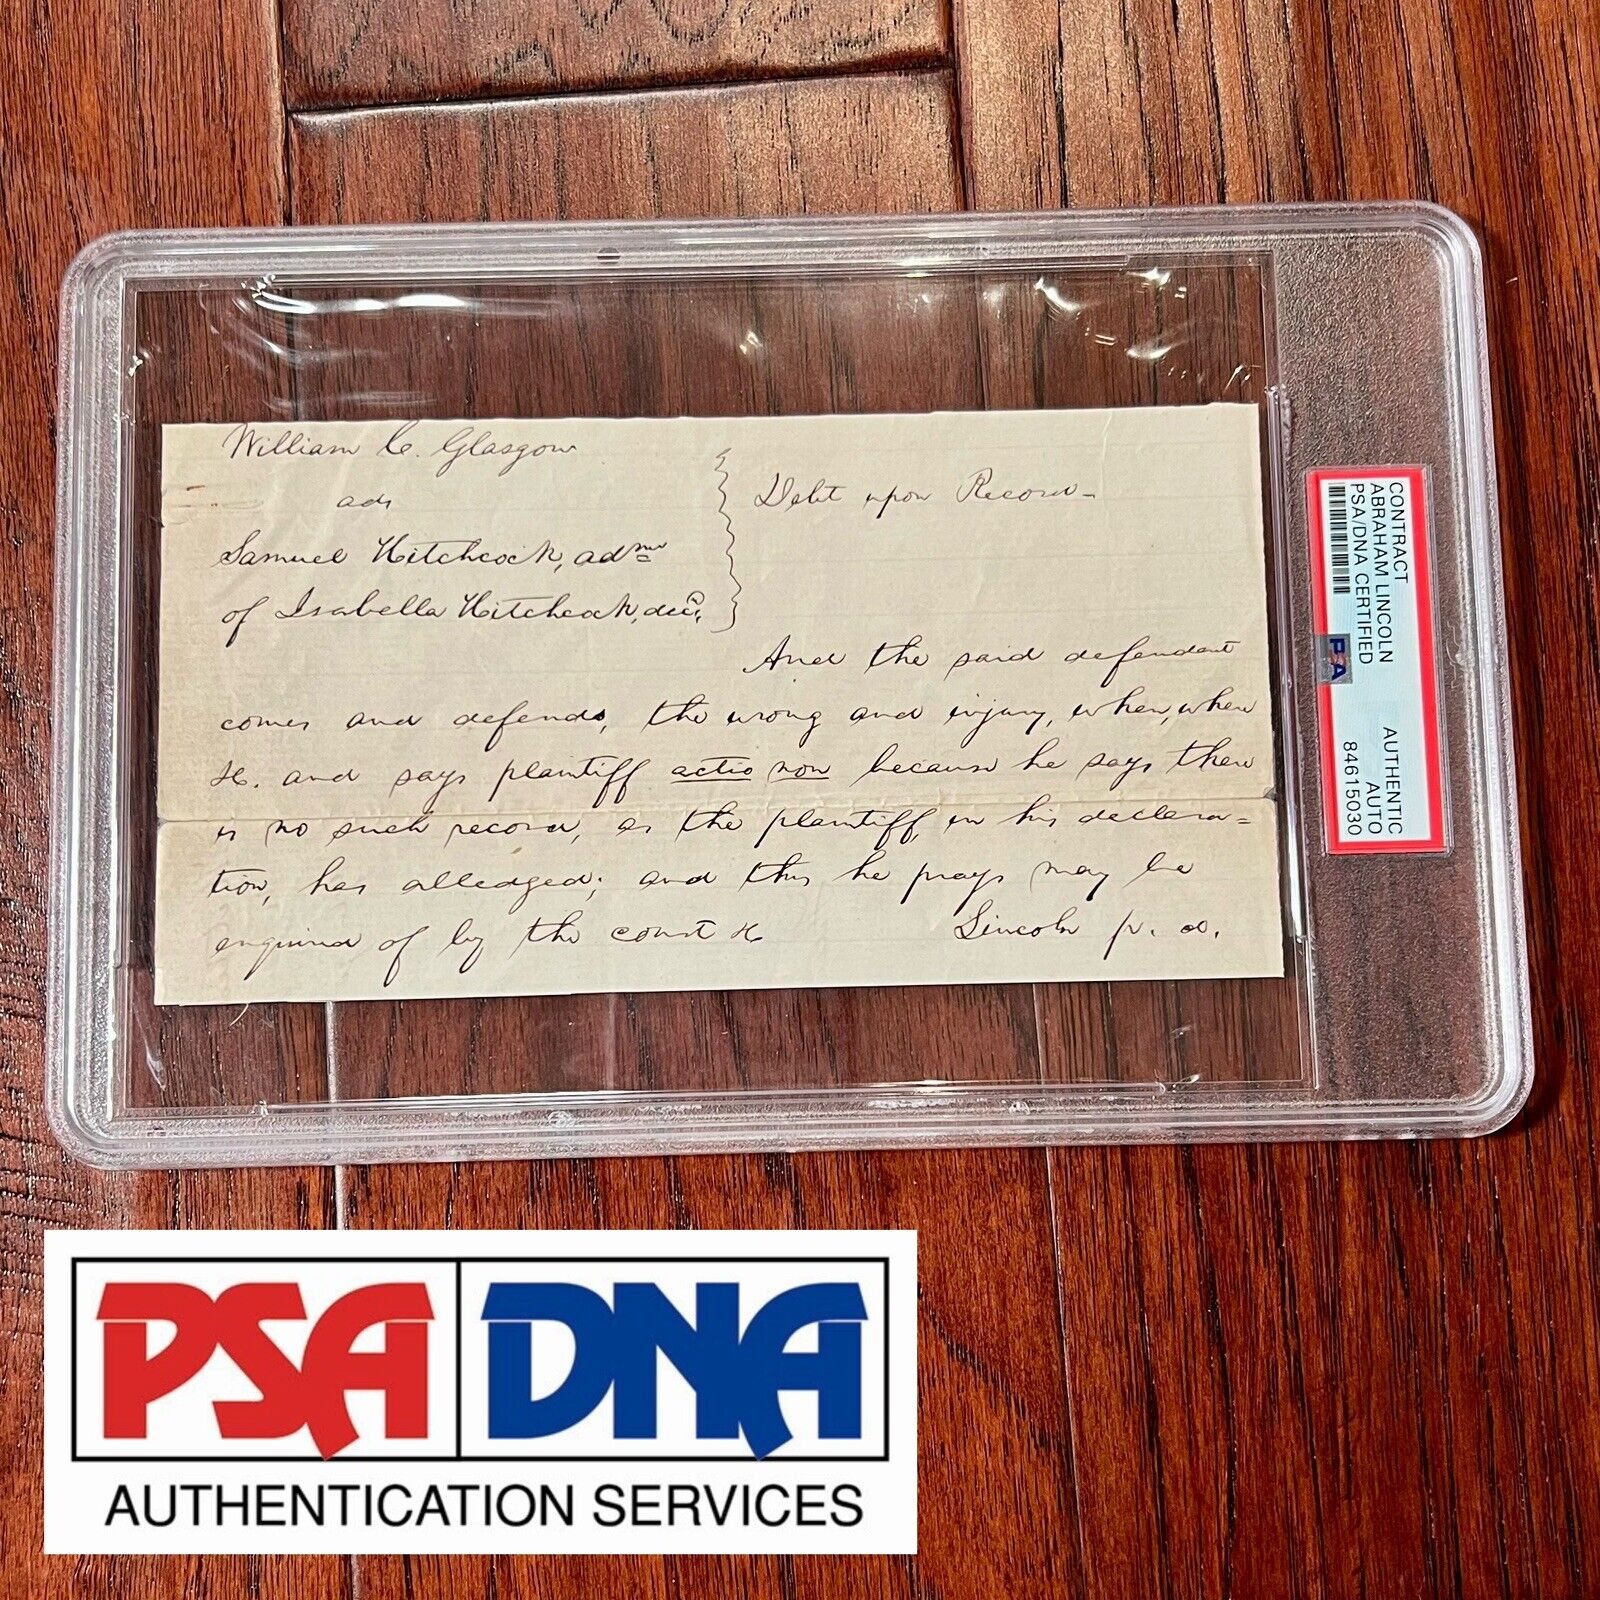 William C. Glasgow
ads
Samuel Hitchcock, admr
of Isabella Hitchcock, decd,
Debt upon Record-
And the said defendant
comes and defends, the wrong and injury, when, where
&c. and says plaintiff actio non because he says there
is no such record, as the plaintiff, in his declera=
tion, has alledged; and this he prays may be
enquired of by the court &c Lincoln p. d.
CONTRACT
ABRAHAM LINCOLN
PSA/DNA CERTIFIED
PSA
AUTHENTIC
AUTO
84615030
PSA DNA
AUTHENTICATION SERVICES